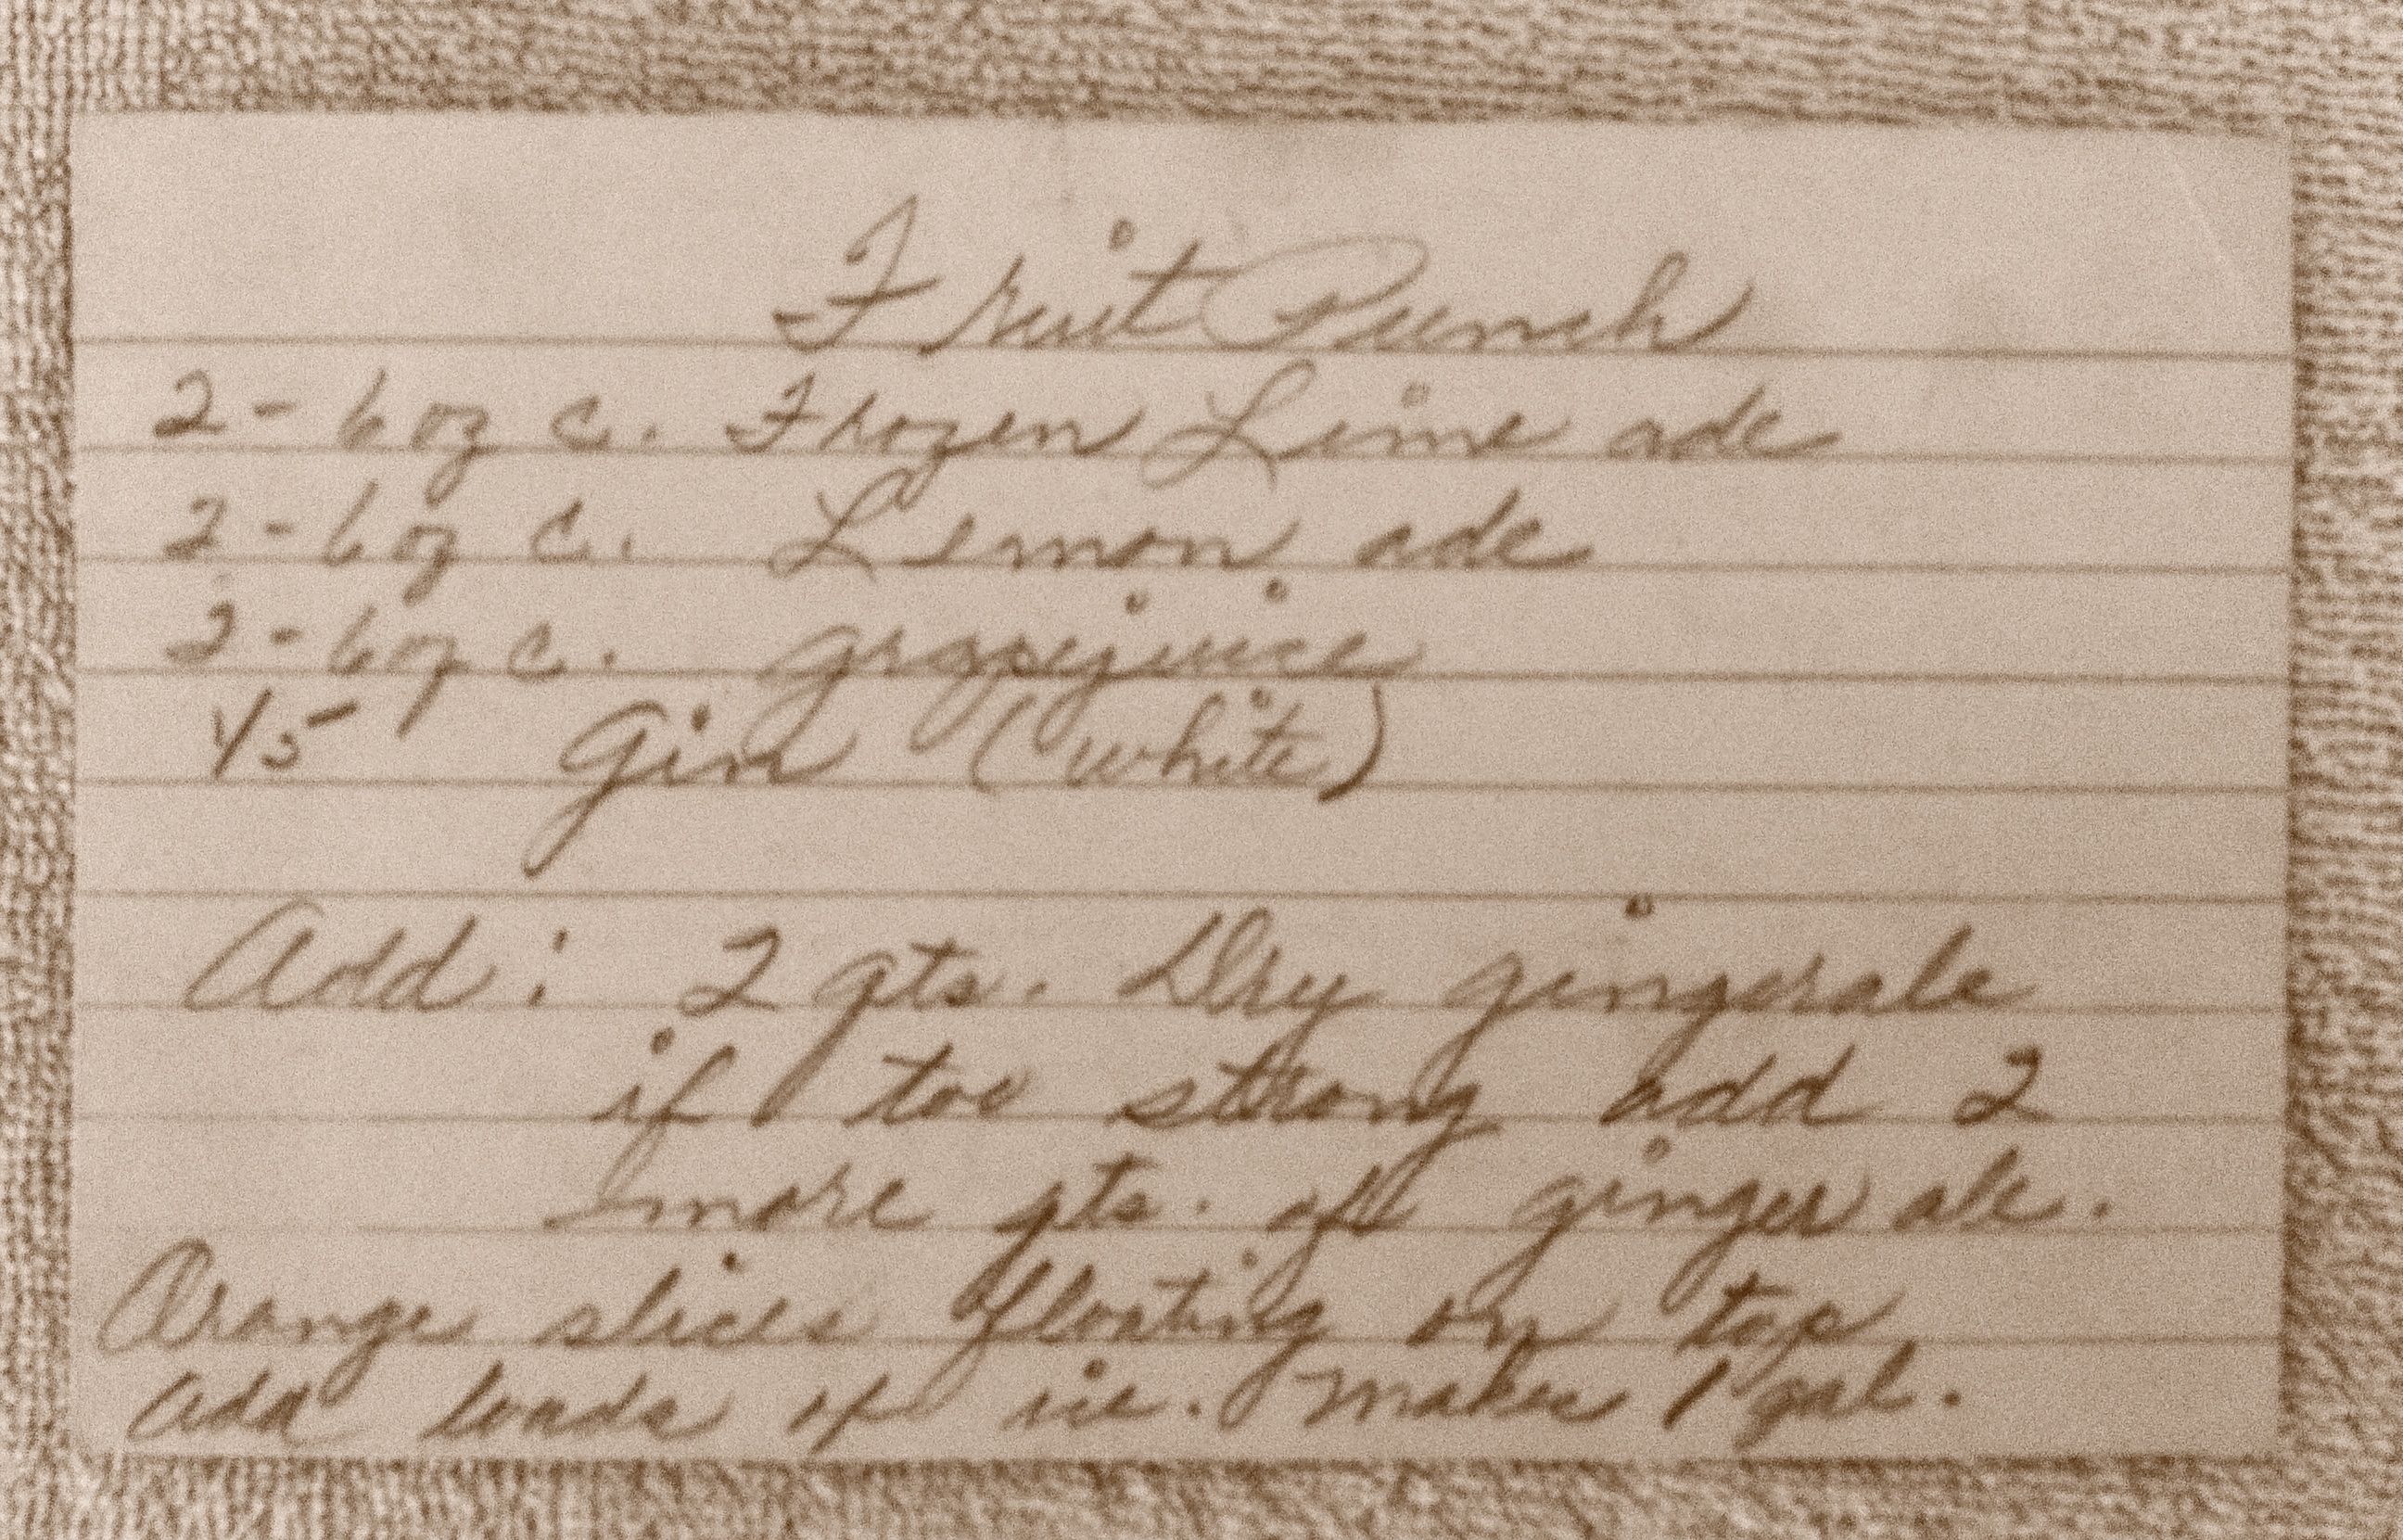 Fruit Punch
2 - 6 oz c. Frozen Lime ade
2 - 6 oz c. Lemon ade
2 - 6 oz c. grapejuice
1/5 Gin (white)
Add: 2 qts. Dry gingerale
if too strong add 2
more qts. of ginger ale.
Orange slices floating on top
add loads of ice. Makes 1 gal.